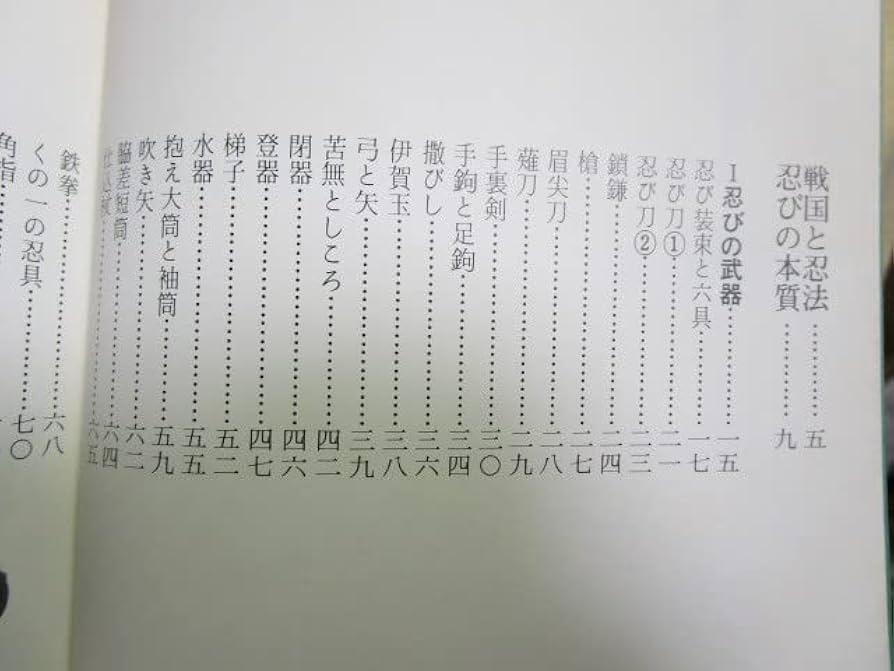 戦国と忍法……………五
忍びの本質……………九
I 忍びの武器……………一五
忍び装束と六具……………一七
忍び刀①……………二一
忍び刀②……………二三
鎖鎌……………二四
槍……………二七
眉尖刀……………二八
薙刀……………二九
手裏剣……………三〇
手鉤と足鉤……………三四
撒びし……………三六
伊賀玉……………三八
弓と矢……………三九
苦無としころ……………四二
閉器……………四六
登器……………四七
梯子……………五二
水器……………五五
抱え大筒と袖筒……………五九
吹き矢……………六二
脇差短筒……………六四
仕込杖……………六五
鉄拳……………六八
くの一の忍具……………七〇
角指……………